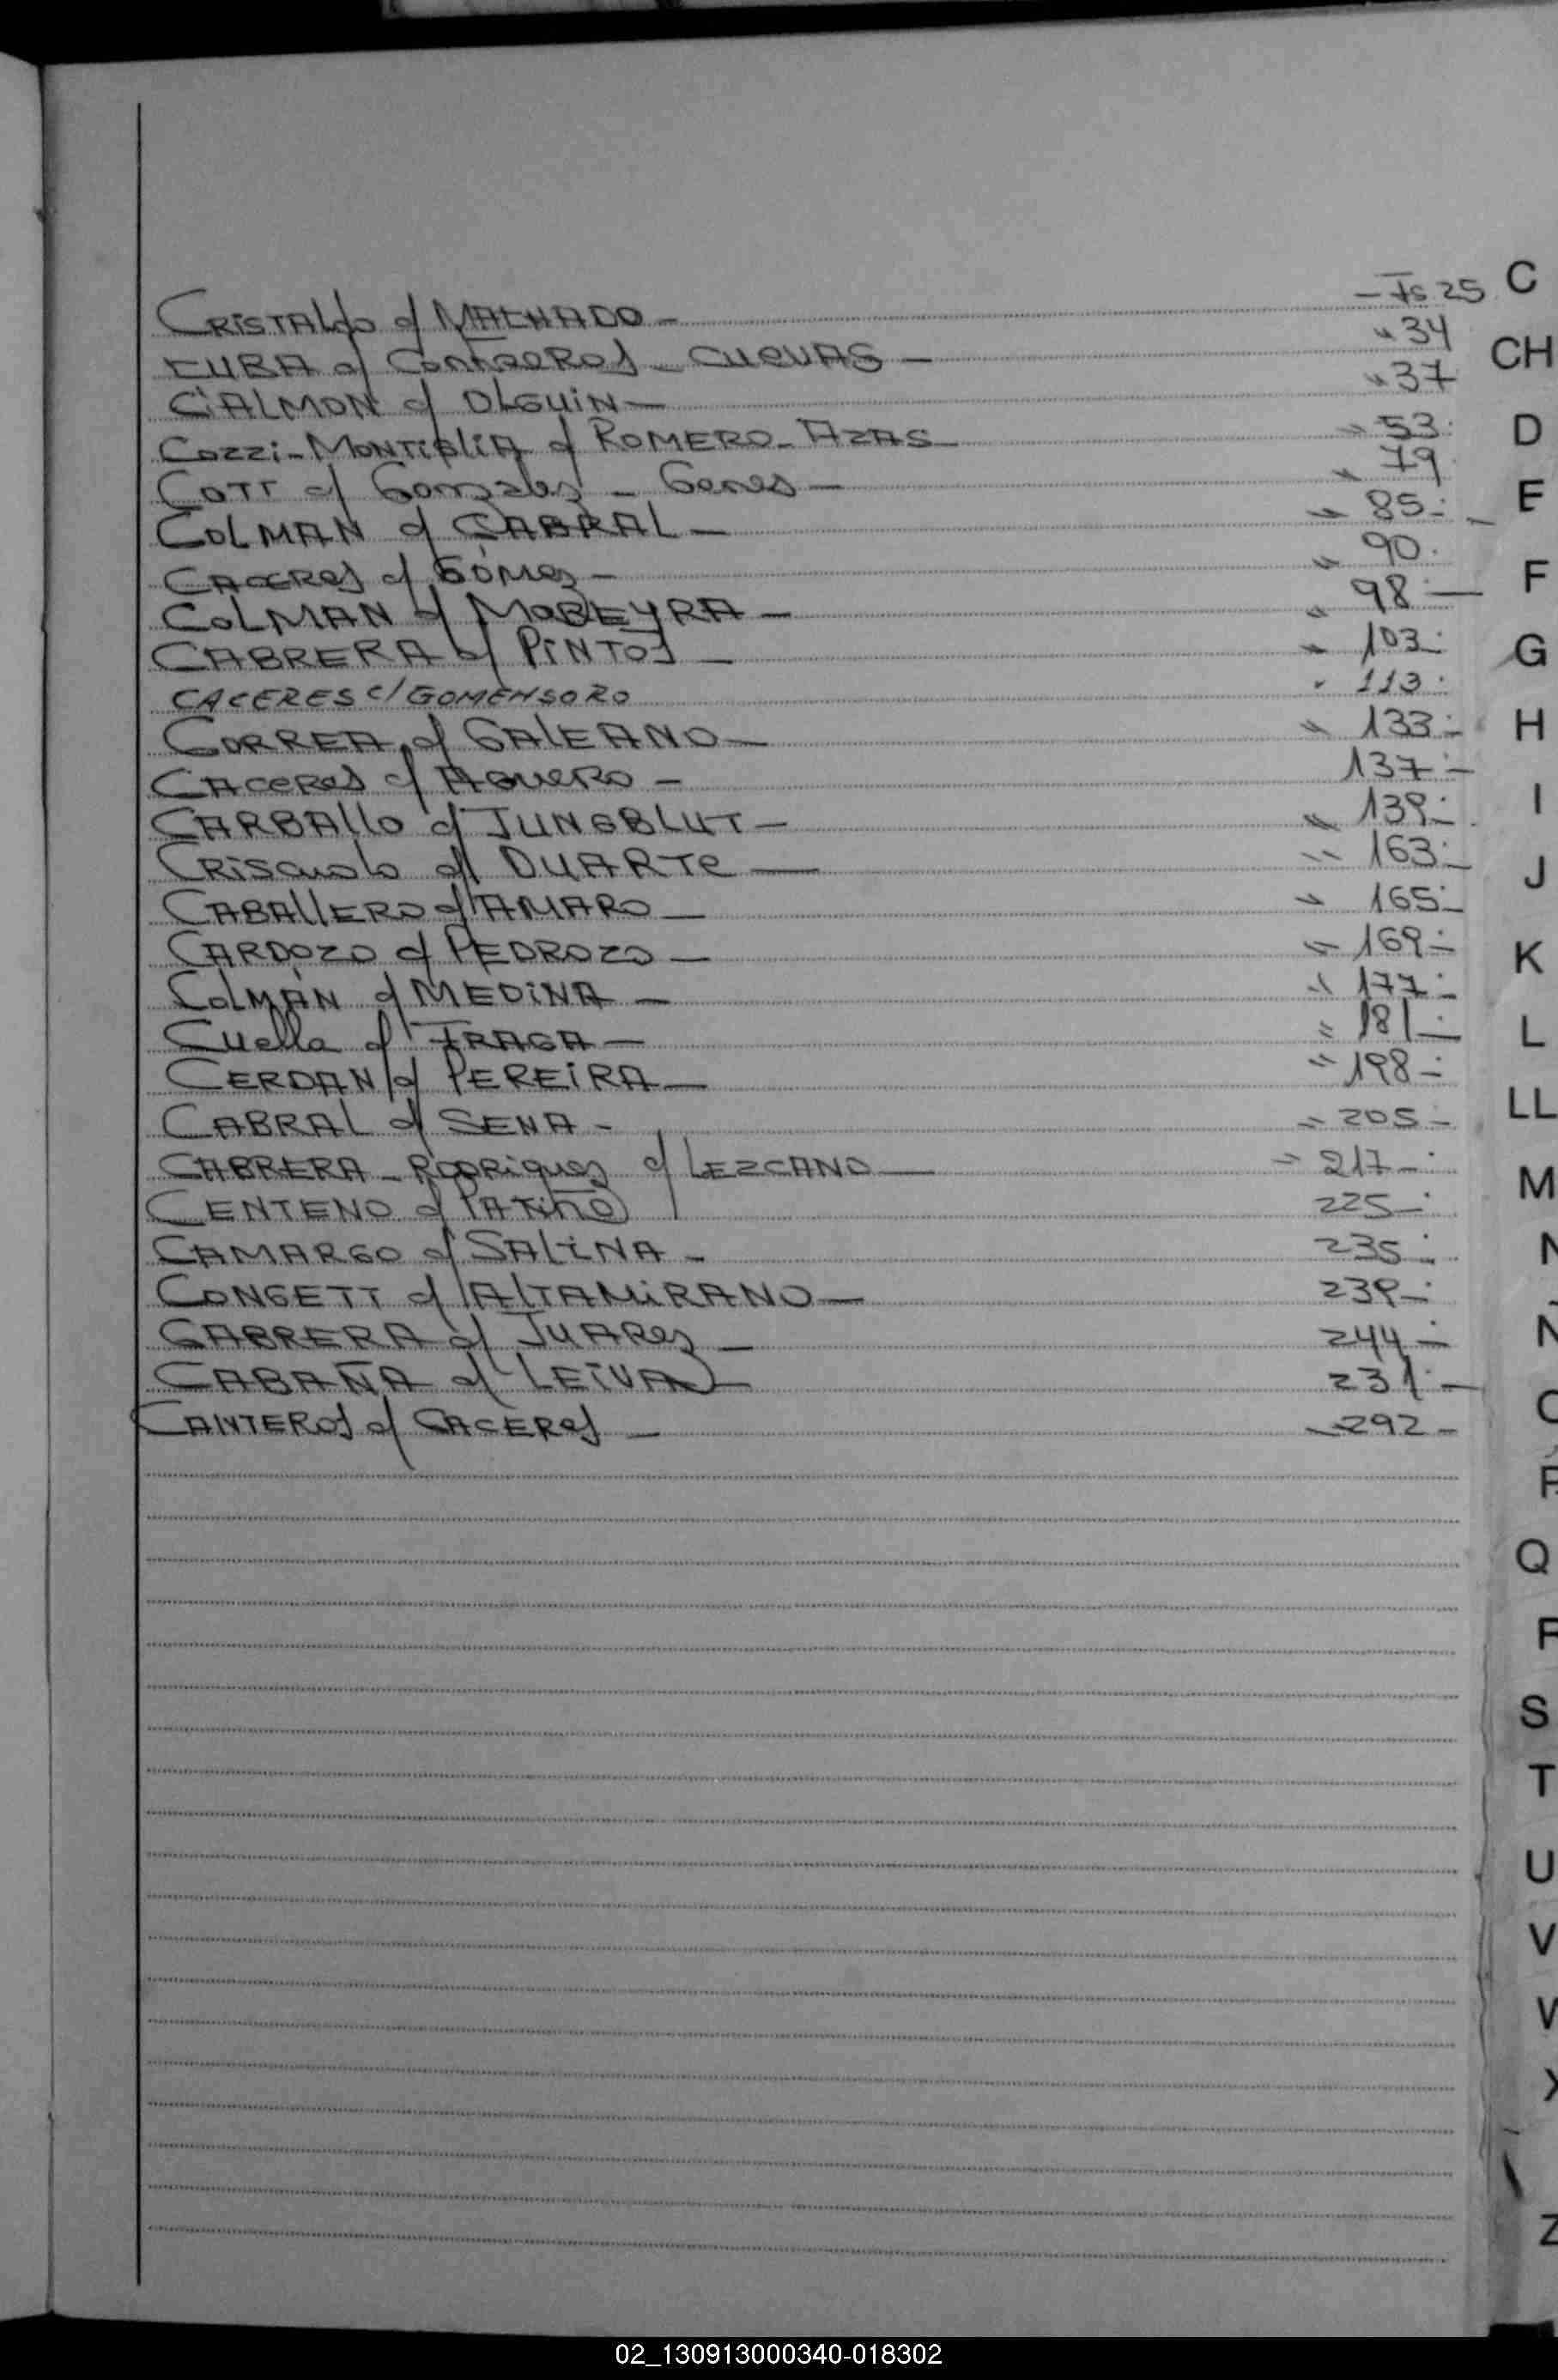 CRISTALDO c/ MACHADO — Fs. 25
CUBA c/ CONTRERAS - CUEVAS — " 34
CIALMON c/ OLGUIN — " 37
COZZI - MONTIGLIA c/ ROMERO - AZAS — " 53.
COTT c/ Gonzalez - Genes — " 79
COLMAN c/ CABRAL — " 85.-
CACERES c/ GÓMEZ — " 90.
COLMAN c/ MOREYRA — " 98 —
CABRERA c/ PINTOS — " 103.
CACERES c/ GOMENSORO " 113.
CORREA c/ GALEANO — " 133.-
CACERES c/ AGUERO — 137.-
CARBALLO c/ JUNGBLUT — " 139.-
CRISCUOLO c/ DUARTE — " 163.-
CABALLERO c/ AMARO — " 165.-
CARDOZO c/ PEDROZO — " 169.-
COLMÁN c/ MEDINA — " 177.-
Cuella c/ FRAGA — " 181.-
CERDAN c/ PEREIRA — " 198.-
CABRAL c/ SENA - " 205.-
CABRERA - RODRIGUEZ c/ LEZCANO — " 217.-
CENTENO c/ PATIÑO 225.-
CAMARGO c/ SALINA — 235.-
CONGETT c/ ALTAMIRANO — 239.-
CABRERA c/ JUAREZ — 244.-
CABAÑA c/ LEIVA — 231.-
CANTEROS c/ CACERES — " 292 -
C
CH
D
E
F
G
H
I
J
K
L
LL
M
N
Ñ
O
P
Q
R
S
T
U
V
W
X
Z
02_130913000340-018302